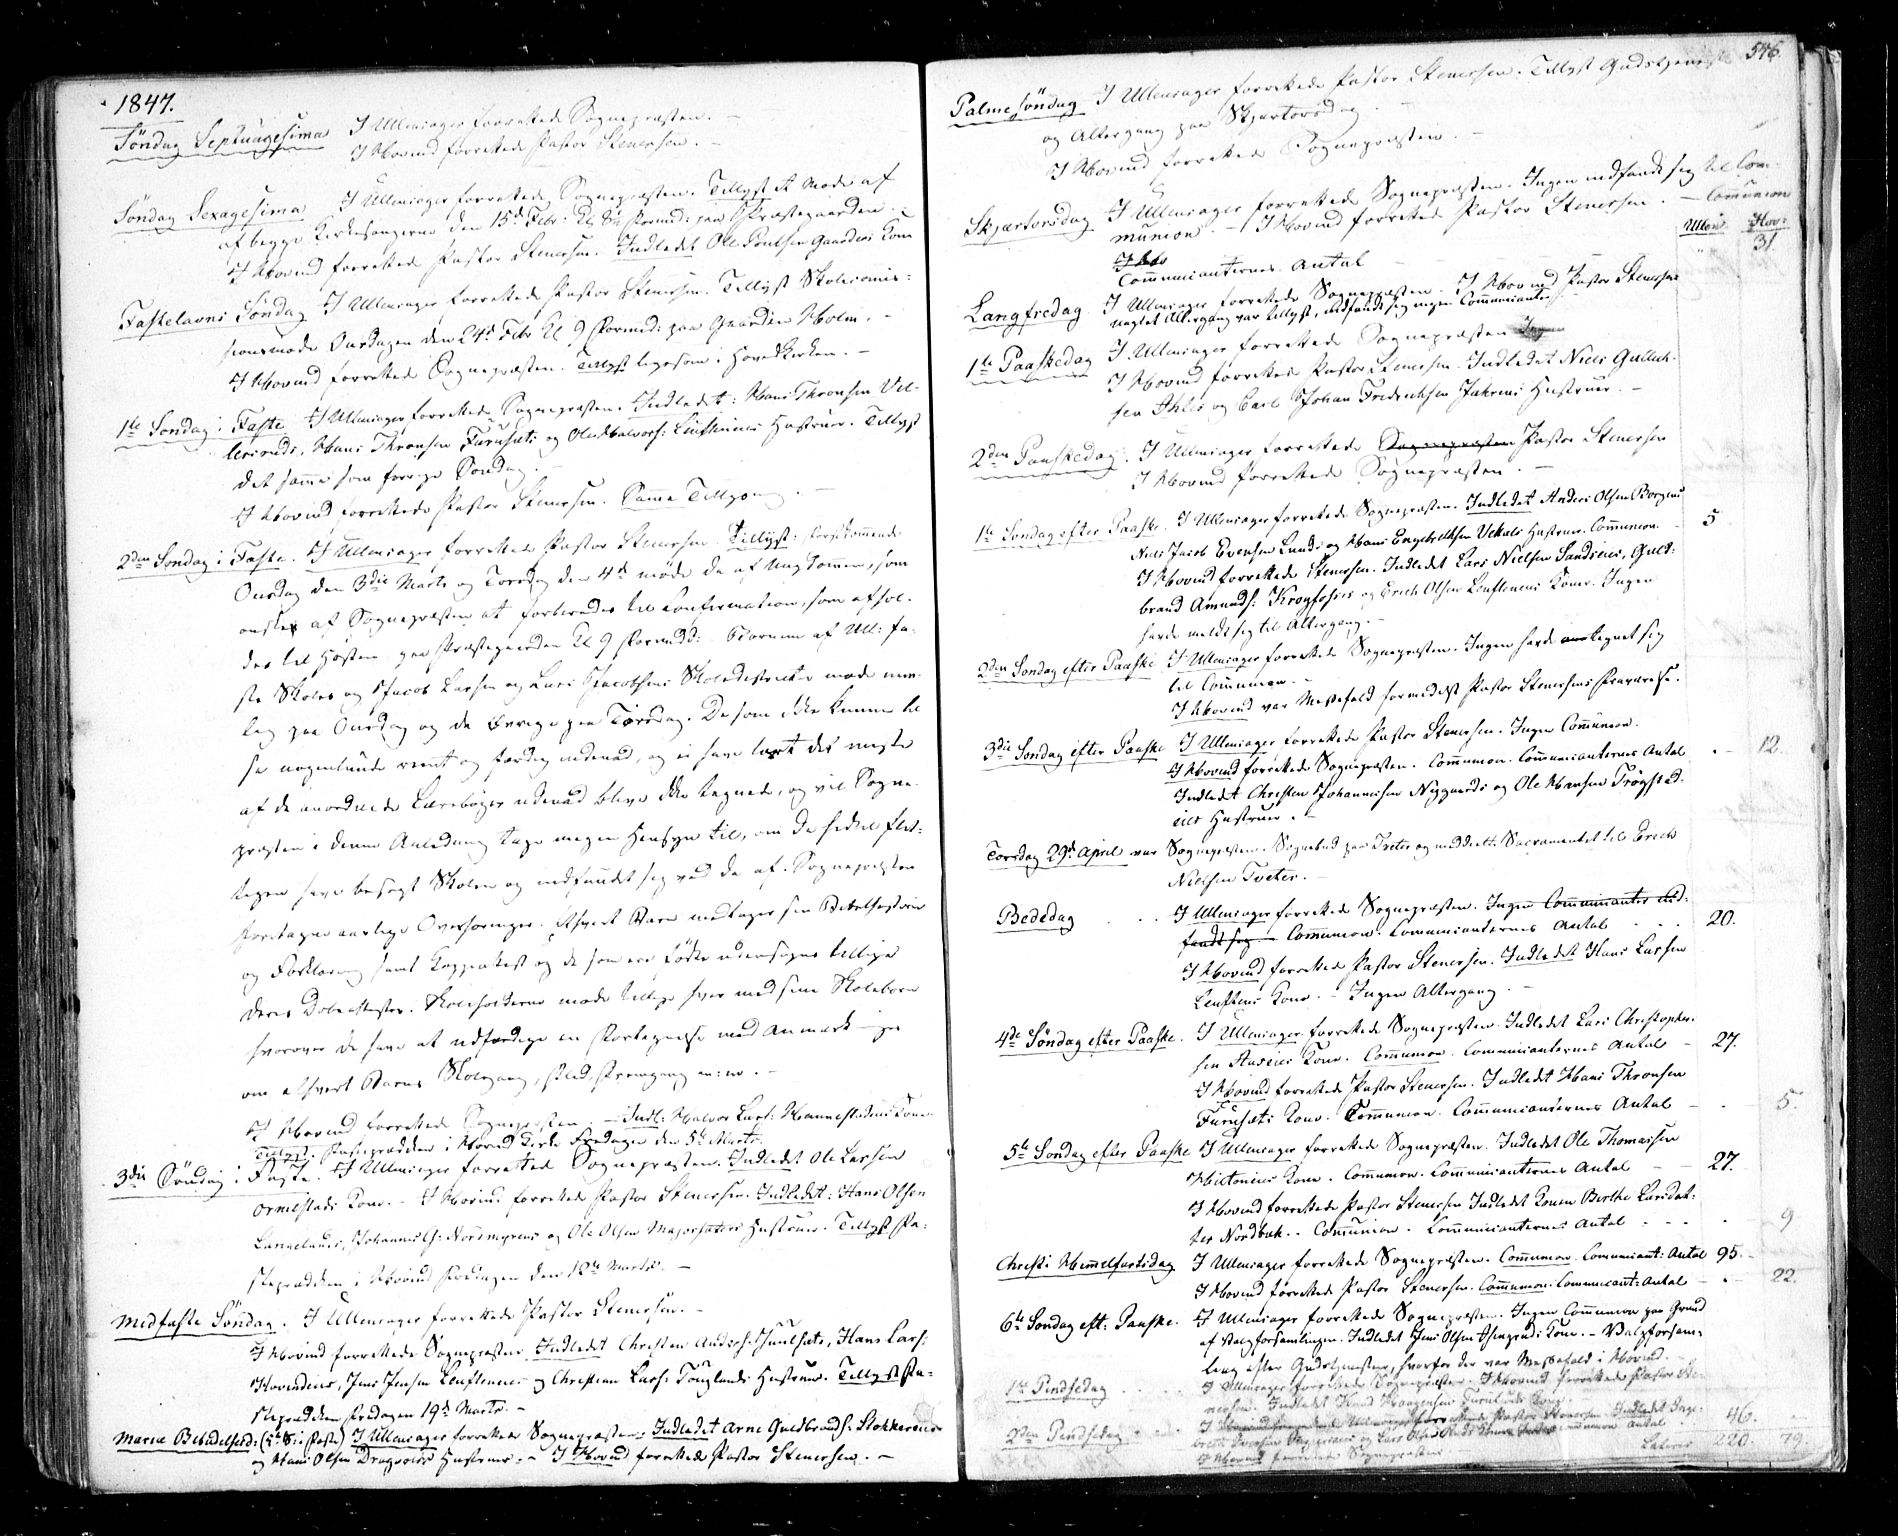 1847.
Söndag Septuagesima I Ullensager forrettede Sognepræsten. –
I Hovind forrettede Pastor Stenersen. –
Söndag Sexagesima I Ullensager forrettede Sognepræsten. Tillyst et Møde af
af begge Kirkesangerne den 15d Febr: Kl Formid: paa Præstegaarden. –
I Hovind forrettede Pastor Stenersen. Indledet Ole Gaarders Kone
Fastelavns Söndag I Ullensager forrettede Pastor Stenersen. Tillyst Skolecomis-
sionsmøde Onsdagen den 24d Febr Kl 9 Formid: paa Gaarden Holm. –
I Hovind forrettede Sognepræsten. Tillyst ligesom i Hovedkirken. –
1te Søndag i Faste I Ullensager forrettede Sognepræsten. Indledet: Hans Thronsen Vel-
Hans Thronsen Furusets og Ole Halvors: Hustruer. Tillyst
det samme som forrige Søndag. –
I Hovind forrettede Pastor Stenersen. Samme Tillysning. –
2den Søndag i Faste. I Ullensager forrettede Pastor Stenersen. Tillyst: førstkommende
Onsdag den 3die Marts og Torsdag den 4d møde de af Ungdommen, som
ønske af Sognepræsten at forberedes til Confirmation, som afhol-
des til Høsten paa Præstegaarden Kl 9 Formidd: Børnene af Ull: fa-
ste Skoler og Jacob Larsen og Lars Jacobsens Skoledistrikter møde nem-
lig paa Onsdag og de øvrige paa Torsdag. De som ikke kunne læ-
se nogenlunde reent og færdig indenad, og ei have lært det meste
af de anordnede Lærebøger udenad blive ikke tegnede, og vil Sogne-
præsten i denne Anledning tage megen Hensyn til, om de hidtil flit-
tigen have besøgt Skolen og indfundet sig ved de af Sognepræsten
foretagne aarlige Overhøringer. Ethvert Barn medtager sin Bibelhistorie
og Forklaring samt Koppeattest og de som ere fødte udensogns tillige
deres Døbeattester. Skoleholderne møde tillige hver med sine Skolebørn
hvorover de have at udfærdige en Fortegnelse med Anmærkninger
om ethvert Barns Skolegang, Flid, Fremgang m: v. –
I Hovind forrettede Sognepræsten. – Indl: Halvor Lars: Hannestadens Kone
Tillyst: Fasteprædiken i Hovind Kirke Fredagen den 5te Marts.
3die Søndag i Faste. I Ullensager forrettede Sognepræsten. Indledet Ole Larsen
Ormestads Kone. – I Hovind forrettede Pastor Stenersen. Indledet: Hans Olsen
Langelands, Johannes G: Nordmyrens og Ole Olsen Majorsæters Hustruer. Tillyst Fa-
steprædiken i Hovind Fredagen den 12te Marts. –
Midfaste Søndag. I Ullensager forrettede Pastor Stenersen. –
I Hovind forrettede Sognepræsten. Indledet Christen Anders: Hans Lars:
Hovindens, Jens Jensen og Christian Lars: Hustruer. Tillyst Fa-
steprædiken Fredagen 19d Marts. –
Mariæ Bebudelsesd: (5te S: i Faste) I Ullensager forrettede Sognepræsten. Indledet Arne Guldbrands: Stokkerens
og Hans Olsen Dragvolds Hustruer. – I Hovind forrettede Pastor Stenersen. –
546.
Palmesöndag I Ullensager forrettede Pastor Stenersen. Tillyst Gudstjeneste
og Altergang paa Skjærtorsdag. –
I Hovind forrettede Sognepræsten. –
Skjærtorsdag I Ullensager forrettede Sognepræsten. Ingen indfandt sig til Com-
munion. – I Hovind forrettede Pastor Stenersen. – Communion
Ullens. Hov:
Communicanternes Antal – – " 31.
Langfredag I Ullensager forrettede Sognepræsten. I Hovind Pastor Stenersen
uagtet Altergang var tillyst, indfandt sig ingen Communicanter
1te Paaskedag I Ullensager forrettede Sognepræsten
I Hovind forrettede Pastor Stenersen. Indledet Niels Gulbrand-
sen og Carl Johan Fredriksen Jahrens Hustruer. –
2den Paaskedag. I Ullensager forrettede Sognepræsten Pastor Stenersen
I Hovind forrettede Sognepræsten. –
1te Søndag efter Paaske. I Ullensager forrettede Sognepræsten. Indledet Anders Olsen Borgens
Niels Jacob Evensen Lunds og Hans Engebrethsen Hustruer. Communion. 5
I Hovind forrettede Stenersen. Indledet Lars Nielsen Sandsens, Guld-
brand Amunds: Krogfosses og Erich Olsen Koner. Ingen
havde meldt sig til Altergang. –
2den Søndag efter Paaske I Ullensager forrettede Sognepræsten. Ingen havde tegnet sig
til Communion. –
I Hovind var Messefald formedelst Pastor Stenersens Fraværelse.
3die Søndag efter Paaske I Ullensager forrettede Pastor Stenersen. Ingen Communion.
I Hovind forrettede Sognepræsten. Communion. Communicanternes Antal . – 12.
Indledet Christen Johannesen Nygaards og Ole Hansen Trøgstad-
eies Hustruer. –
Torsdag 29d April var Sognepræsten i Sognebud paa Tveter og meddeelte Sacramentet til Erich
Nielsen Tveter. –
Bededag I Ullensager forrettede Sognepræsten. Ingen Communicanter ind-
fandt sig – Communion. Communicanternes Antal . . . 20.
I Hovind forrettede Pastor Stenersen. Indledet Hans Larsen
Kone. – Ingen Altergang. –
4de Søndag efter Paaske. I Ullensager forrettede Sognepræsten. Indledet Lars Christopher-
sen Kone. Communion. Communicanternes Antal – 27.
I Hovind forrettede Pastor Stenersen. Indledet Hans Thronsen
Furusets Kone. Communion. Communicanternes Antal – . 5.
5te Søndag efter Paaske I Ullensager forrettede Sognepræsten. Indledet Ole Thomassen
Kone. Communion. Communicanternes Antal – – 27.
I Hovind forrettede Pastor Stenersen Indledet Konen Berthe Larsdat-
ter Nordbak. – Communion. Communicanternes Antal . . . . 9
Christi Himmelfartsdag I Ullensager forrettede Sognepræsten. Communion. Communicant: Antal 95. –
I Hovind forrettede Pastor Stenersen. Communion. Communicant: Antal – . – 22.
6te Søndag eft: Paaske. I Ullensager forrettede Sognepræsten. Ingen Communion paa Grund
af Valgforsamlingen. Indledet Jens Olsen Kone. – Valgforsam-
ling efter Gudstjenesten, hvorfor der var Messefald i Hovind. –
1te Pindsedag . . . I Ullensager forrettede Sognepræsten. I Hovind forrettede Pastor Ste-
nersen. Indledet
2den Pindsedag . . . I Ullensager forrettede Pastor Stenersen Indledet
Antal 46. –
I Hovind forrettede Sognepræsten Lateris 220. 79.